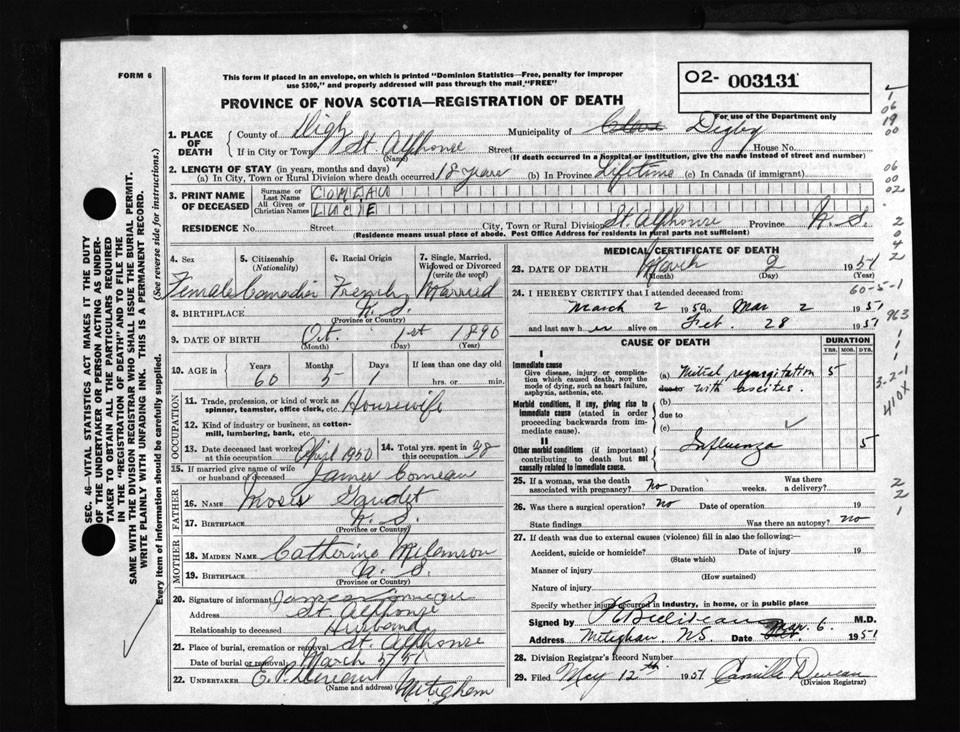 FORM 6
This form if placed in an envelope, on which is printed "Dominion Statistics—Free, penalty for improper
use $300," and properly addressed will pass through the mail "FREE"
O2- 003131
For use of the Department only
PROVINCE OF NOVA SCOTIA—REGISTRATION OF DEATH
1. PLACE OF DEATH
County of Digby Municipality of Clare Digby
If in City or Town St Alphonse Street House No.
(Name) (If death occurred in a hospital or institution, give the name instead of street and number)
2. LENGTH OF STAY (in years, months and days)
(a) In City, Town or Rural Division where death occurred 18 years (b) In Province Lifetime (c) In Canada (if immigrant)
3. PRINT NAME OF DECEASED
Surname or Last Name COMEAU
All Given or Christian Names LUCIE
RESIDENCE No. Street City, Town or Rural Division St. Alphonse Province N. S.
(Residence means usual place of abode. Post Office Address for residents in rural parts not sufficient)
4. Sex Female
5. Citizenship (Nationality) Canadian
6. Racial Origin French
7. Single, Married, Widowed or Divorced (write the word) Married
8. BIRTHPLACE N. S.
(Province or Country)
9. DATE OF BIRTH Oct. 1st 1890
(Month) (Day) (Year)
10. AGE in Years 60 Months 5 Days 1 If less than one day old hrs. or min.
OCCUPATION
11. Trade, profession, or kind of work as spinner, teamster, office clerk, etc. Housewife
12. Kind of industry or business, as cotton-mill, lumbering, bank, etc.
13. Date deceased last worked at this occupation April 1950
14. Total yrs. spent in this occupation 28
15. If married give name of wife or husband of deceased James Comeau
FATHER
16. NAME Moses Gaudet
17. BIRTHPLACE N. S.
(Province or Country)
MOTHER
18. MAIDEN NAME Catherine
19. BIRTHPLACE N. S.
(Province or Country)
20. Signature of informant James Comeau
Address St Alphonse
Relationship to deceased Husband
21. Place of burial, cremation or removal St. Alphonse
Date of burial or removal March 5/51
22. UNDERTAKER
(Name and address) Meteghan
MEDICAL CERTIFICATE OF DEATH
23. DATE OF DEATH March 2 1951
(Month) (Day) (Year)
24. I HEREBY CERTIFY that I attended deceased from:
60-5-1
March 2 1950 Mar 2 1951
and last saw her alive on Feb. 28 1951
CAUSE OF DEATH
DURATION
YRS. MOS. DYS.
I
Immediate cause
Give disease, injury or complication which caused death, not the mode of dying, such as heart failure, asphyxia, asthenia, etc.
(a) Mitral regurgitation 5
with ascites.
Morbid conditions, if any, giving rise to immediate cause (stated in order proceeding backwards from immediate cause).
(b)
due to
(c)
II
Other morbid conditions (if important) contributing to death but not causally related to immediate cause.
Influenza 5
25. If a woman, was the death associated with pregnancy? No Duration weeks. Was there a delivery?
26. Was there a surgical operation? No Date of operation 19
State findings Was there an autopsy? no
27. If death was due to external causes (violence) fill in also the following:—
Accident, suicide or homicide? Date of injury 19
(State which)
Manner of injury
(How sustained)
Nature of injury
Specify whether injury occurred in industry, in home, or in public place
Signed by M.D.
Address Meteghan, NS. Date Mar. 6. 1951
28. Division Registrar's Record Number
29. Filed May 12th 1951 Camille
(Division Registrar)
SEC. 46 —VITAL STATISTICS ACT MAKES IT THE DUTY
OF THE UNDERTAKER OR PERSON ACTING AS UNDER-
TAKER TO OBTAIN ALL THE PARTICULARS REQUIRED
IN THE "REGISTRATION OF DEATH" AND TO FILE THE
SAME WITH THE DIVISION REGISTRAR WHO SHALL ISSUE THE BURIAL PERMIT.
WRITE PLAINLY WITH UNFADING INK. THIS IS A PERMANENT RECORD.
Every item of information should be carefully supplied. (See reverse side for instructions.)
1
06
19
00
06
00
02
2
0
4
2
963
1
1
1
3-2-1
410X
2
2
1